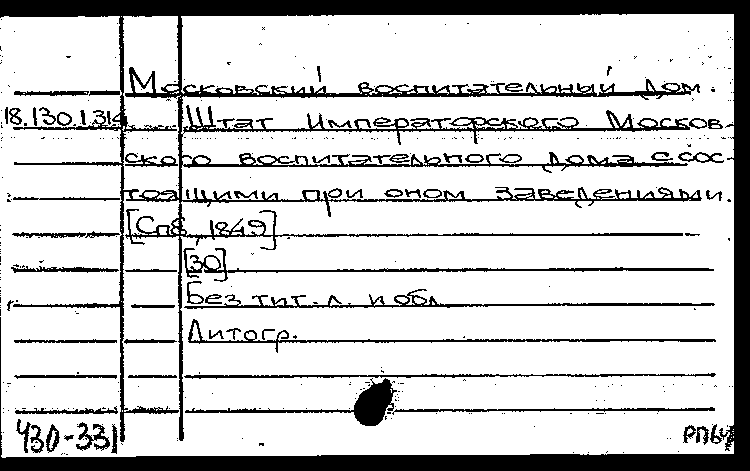 Московский воспитательный дом.
18.130.1.314 Штат Императорского Москов-
ского воспитательного дома с сос-
тоящими при оном заведениями.
[Спб, 1849]
[30]
Без тит. л. и обл.
Литогр.
430-331